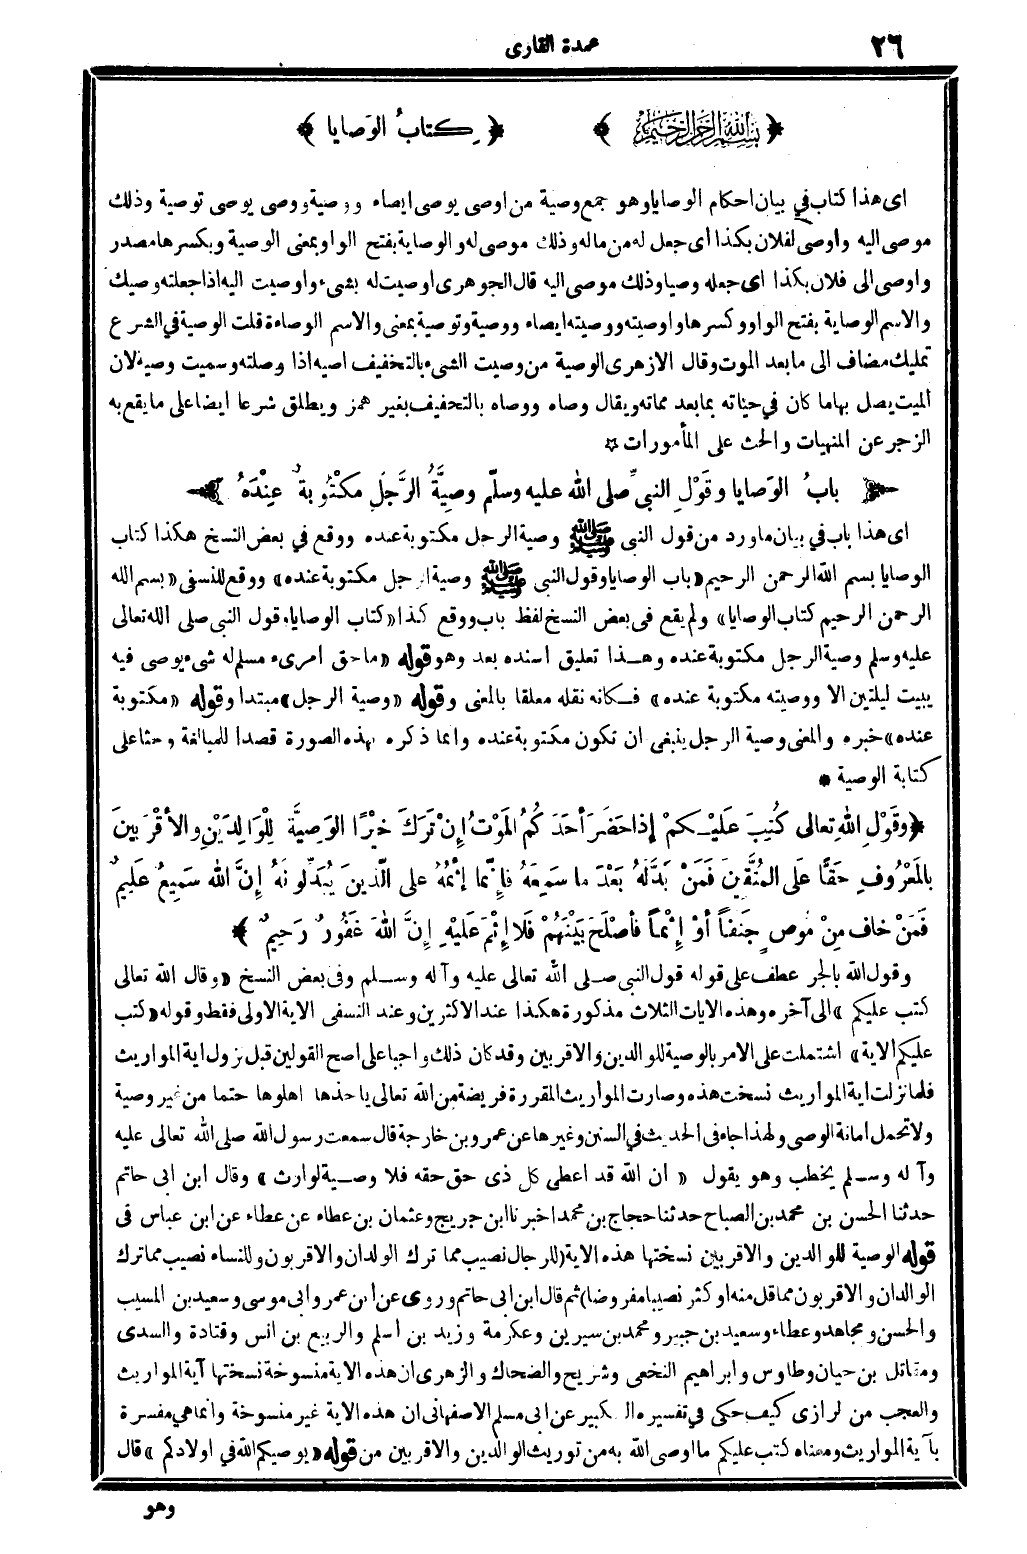 ٢٦
عمدة القارى
﴿ بسم الله الرحمن الرحيم ﴾ ﴿ كِتابُ الوَصايا ﴾
اى هذا كتاب في بيان احكام الوصايا وهو جمع وصية من اوصى يوصى ايصاء ووصية ووصى يوصى توصية وذلك
موصى اليه واوصى لفلان بكذا أى جعل له من ماله وذلك موصى له والوصاية بفتح الواو بمعنى الوصية وبكسرها مصدر
واوصى الى فلان بكذا اى جعله وصيا وذلك موصى اليه قال الجوهرى اوصيت له بشىء واوصيت اليه اذا جعلته وصيك
والاسم الوصاية بفتح الواو وكسرها واوصيته ووصيته ايصاء ووصية وتوصية بمعنى والاسم الوصاءة قلت الوصية في الشرع
تمليك مضاف الى ما بعد الموت وقال الازهرى الوصية من وصيت الشىء بالتخفيف اصيه اذا وصلته وسميت وصية لان
الميت يصل بها ما كان في حياته بما بعد مماته ويقال وصاه ووصاه بالتخفيف بغير همز ويطلق شرعا ايضا على ما يقع به
الزجر عن المنهيات والحث على المأمورات ☆
﴿ بابُ الوَصايا وقَوْلِ النبيِّ صلى الله عليه وسلّم وصِيَّةُ الرَّجلِ مَكْتُوبةٌ عِنْدَهُ ﴾
اى هذا باب في بيان ما ورد من قول النبى ﷺ وصية الرجل مكتوبة عنده ووقع في بعض النسخ هكذا كتاب
الوصايا بسم الله الرحمن الرحيم «باب الوصايا وقول النبى ﷺ وصية الرجل مكتوبة عنده» ووقع للنسفى «بسم الله
الرحمن الرحيم كتاب الوصايا» ولم يقع فى بعض النسخ لفظ باب ووقع كذا «كتاب الوصايا وقول النبى صلى الله تعالى
عليه وسلم وصية الرجل مكتوبة عنده وهذا تعليق اسنده بعد وهو قوله «ما حق امرىء مسلم له شىء يوصى فيه
يبيت ليلتين الا ووصيته مكتوبة عنده» فكانه نقله معلقا بالمعنى وقوله «وصية الرجل» مبتدا وقوله «مكتوبة
عنده» خبره والمعنى وصية الرجل ينبغى ان تكون مكتوبة عنده وانما ذكره بهذه الصورة قصدا للمبالغة وحثا على
كتابة الوصية *
﴿وقَوْلِ اللهِ تعالى كُتِبَ عَلَيْكمْ إذا حَضَرَ أحَدَكُمُ المَوْتُ إنْ تَرَكَ خيْرًا الوَصِيَّةُ لِلْوَالِدَيْنِ والأقْرَبِينَ
بالمَعْرُوفِ حَقًّا عَلَى المُتَّقِينَ فَمَنْ بَدَّلَهُ بَعْدَ ما سَمِعَهُ فإنَّمَا إثْمُهُ على الَّذينَ يُبَدِّلونَهُ إنَّ الله سَمِيعٌ عَلِيمٌ
فَمَنْ خافَ مِنْ مُوصٍ جَنَفاً أوْ إثْماً فأصْلَحَ بَيْنَهُمْ فَلا إثْمَ عَلَيْهِ إنَّ اللهَ غَفُورٌ رَحِيمٌ ﴾
وقول الله بالجر عطف على قوله قول النبى صلى الله تعالى عليه وآله وسلم وفى بعض النسخ «وقال الله تعالى
كتب عليكم» الى آخره وهذه الايات الثلاث مذكورة هكذا عند الاكثرين وعند النسفى الاية الاولى فقط وقوله «كتب
عليكم الاية» اشتملت على الامر بالوصية للوالدين والاقربين وقد كان ذلك واجبا على اصح القولين قبل نزول اية المواريث
فلما نزلت اية المواريث نسخت هذه وصارت المواريث المقررة فريضة من الله تعالى ياخذها اهلوها حتما من غير وصية
ولا تحمل امانة الوصى ولهذا جاء فى الحديث في السنن وغيرها عن عمرو بن خارجة قال سمعت رسول الله صلى الله تعالى عليه
وآله وسلم يخطب وهو يقول « ان الله قد اعطى كل ذى حق حقه فلا وصية لوارث» وقال ابن ابى حاتم
حدثنا الحسن بن محمد بن الصباح حدثنا حجاج بن محمد اخبرنا ابن جريج وعثمان بن عطاء عن عطاء عن ابن عباس فى
قوله الوصية للوالدين والاقربين نسختها هذه الاية (للرجال نصيب مما ترك الوالدان والاقربون وللنساء نصيب مما ترك
الوالدان والاقربون مما قل منه او كثر نصيبا مفروضا) ثم قال ابن ابى حاتم وروى عن ابن عمر وابى موسى وسعيد بن المسيب
والحسن ومجاهد وعطاء وسعيد بن جبير ومحمد بن سيرين وعكرمة وزيد بن أسلم والربيع بن انس وقتادة والسدى
ومقاتل بن حيان وطاوس وابراهيم النخعى وشريح والضحاك والزهرى ان هذه الاية منسوخة نسختها آية المواريث
والعجب من الرازى كيف حكى في تفسيره الكبير عن ابى مسلم الاصفهانى ان هذه الاية غير منسوخة وانما هى مفسرة
بآية المواريث ومعناه كتب عليكم ما اوصى الله به من توريث الوالدين والاقربين من قوله «يوصيكم الله في اولادكم» قال
وهو